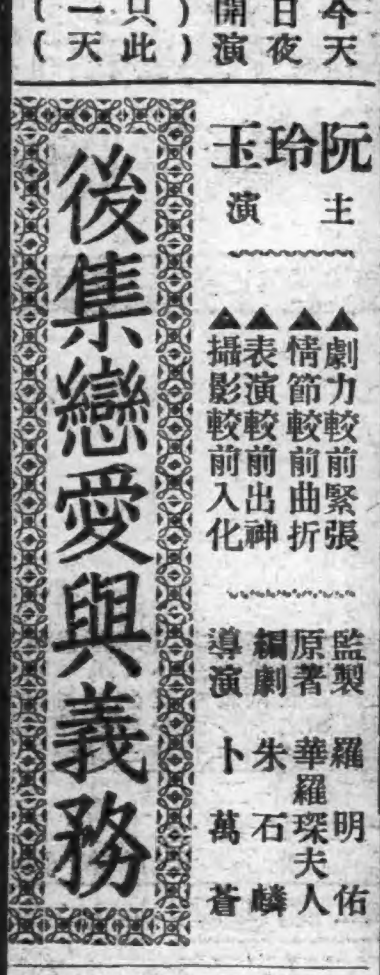 今天
日夜
開演
(只此
一天)
阮玲玉
主演
▲劇力較前緊張
▲情節較前曲折
▲表演較前出神
▲攝影較前入化
監製 羅明佑
原著 華羅琛夫人
編劇 朱石麟
導演 卜萬蒼
後集戀愛與義務